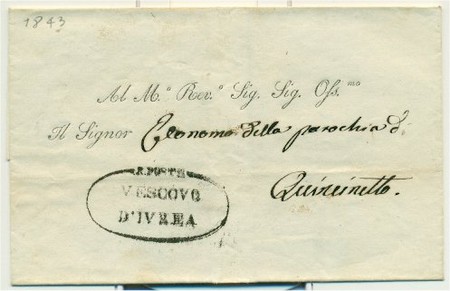 1843
Al M.º Rev.º Sig. Sig. Oss.mo
Il Signor Economo della parochia di
Quincinetto.
R. POSTE
VESCOVO
D'IVREA